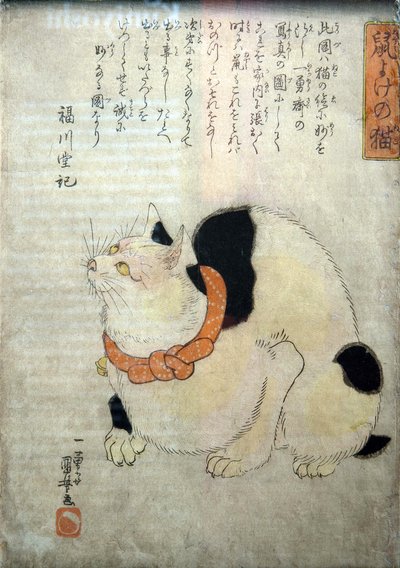 鼠よけの猫
此圖ハ猫の絵に妙を
得し一勇斎の
寫真の圖にして
これを家内に張おく
時にハ鼠もこれをみれバ
おのづとおそれをなし
次第にすくなくなりて
出る事なしたとへ
出るともいたづらを
けつしてせず誠に
妙なる圖なり
福川堂記
一勇斎
國芳画